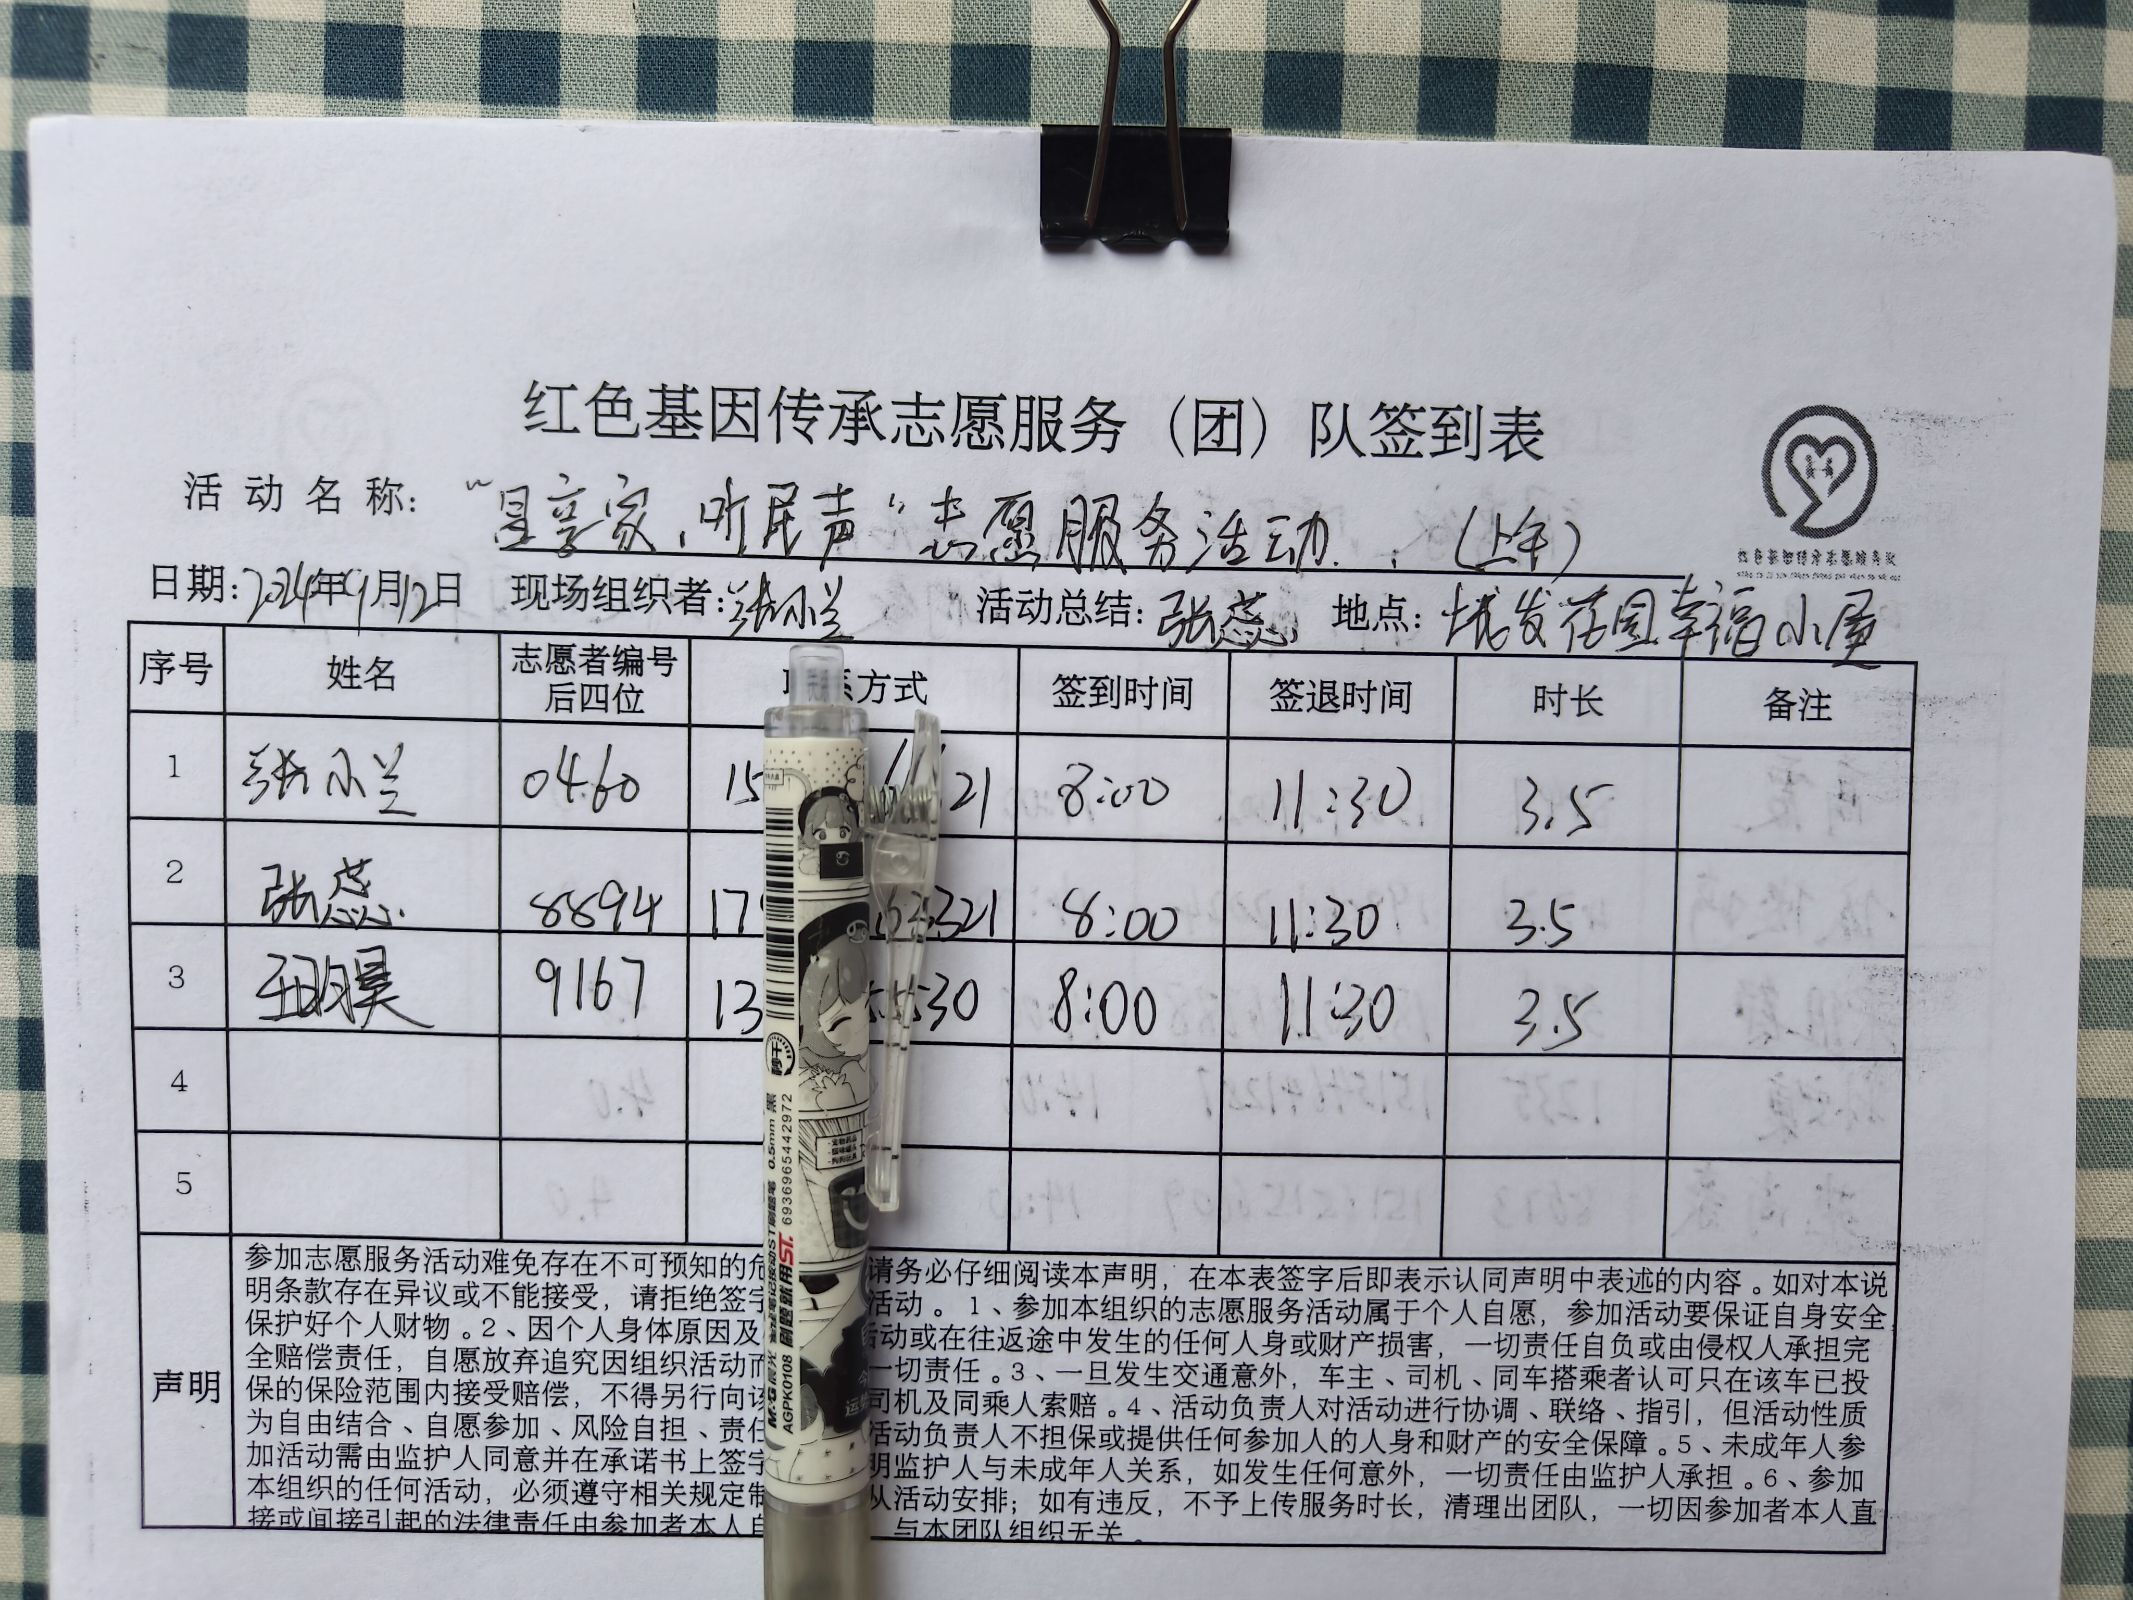 红色基因传承志愿服务（团）队签到表
活动名称：“星享家，听民声”志愿服务活动．（上午）
日期：2024年9月12日 现场组织者：张小兰 活动总结：张蕊 地点：城发花园幸福小屋
序号 姓名 志愿者编号后四位 系方式 签到时间 签退时间 时长 备注
1 张小兰 0460 15 21 8:00 11:30 3.5
2 张蕊 8894 17 321 8:00 11:30 3.5
3 9167 13 5530 8:00 11:30 3.5
4
5
声明
参加志愿服务活动难免存在不可预知的危 请务必仔细阅读本声明，在本表签字后即表示认同声明中表述的内容。如对本说
明条款存在异议或不能接受，请拒绝签字 活动。1、参加本组织的志愿服务活动属于个人自愿，参加活动要保证自身安全
保护好个人财物。2、因个人身体原因及 活动或在往返途中发生的任何人身或财产损害，一切责任自负或由侵权人承担完
全赔偿责任，自愿放弃追究因组织活动而 一切责任。3、一旦发生交通意外，车主、司机、同车搭乘者认可只在该车已投
保的保险范围内接受赔偿，不得另行向该 司机及同乘人索赔。4、活动负责人对活动进行协调、联络、指引，但活动性质
为自由结合、自愿参加、风险自担、责任 活动负责人不担保或提供任何参加人的人身和财产的安全保障。5、未成年人参
加活动需由监护人同意并在承诺书上签字 明监护人与未成年人关系，如发生任何意外，一切责任由监护人承担。6、参加
本组织的任何活动，必须遵守相关规定制 从活动安排；如有违反，不予上传服务时长，清理出团队，一切因参加者本人直
接或间接引起的法律责任由参加者本人自 与本团队组织无关。
M&G 晨光 0.5mm 黑
AGPK0108 刷题就用ST. 6936965442972
秒干